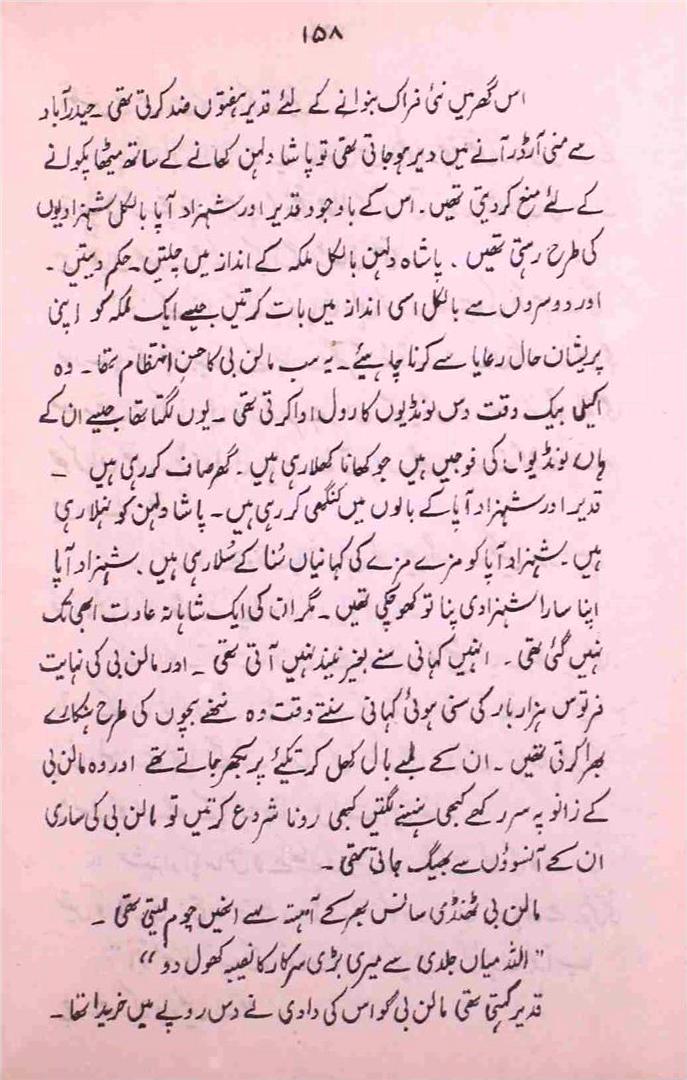 ۱۵۸
اس گھر میں نئی فراک بنوانے کے لئے قدیر ہفتوں ضد کرتی تھی۔ حیدرآباد
سے منی آرڈر آنے میں دیر ہو جاتی تھی تو پاشا دلہن کھانے کے ساتھ میٹھا پکوانے
کے لئے منع کر دیتی تھیں۔ اس کے باوجود قدیر اور شہزاد آپا بالکل شہزادیوں
کی طرح رہتی تھیں۔ پاشاہ دلہن بالکل ملکہ کے انداز میں چلتیں۔ حکم دیتیں۔
اور دوسروں سے بالکل اسی انداز میں بات کرتیں جیسے ایک ملکہ کو اپنی
پریشان حال رعایا سے کرنا چاہیئے۔ یہ سب مالن بی کا حسنِ انتظام تھا۔ وہ
اکیلی بیک وقت دس لونڈیوں کا رول ادا کرتی تھی۔ یوں لگتا تھا جیسے ان کے
ہاں لونڈیوں کی فوجیں ہیں جو کھانا کھلا رہی ہیں۔ گھر صاف کر رہی ہیں۔
قدیر اور شہزاد آپا کے بالوں میں کنگھی کر رہی ہیں۔ پاشا دلہن کو نہلا رہی
ہیں۔ شہزاد آپا کو مزے مزے کی کہانیاں سُنا کے سُلا رہی ہیں۔ شہزاد آپا
اپنا سارا شہزادی پنا تو کھو چکی تھیں۔ مگر ان کی ایک شاہانہ عادت ابھی تک
نہیں گئی تھی۔ انہیں کہانی سنے بغیر نیند نہیں آتی تھی۔ اور مالن بی کی نہایت
فرتوس ہزار بار کی سنی ہوئی کہانی سنتے وقت وہ ننھے بچوں کی طرح ہنکارے
بھرا کرتی تھیں۔ ان کے لمبے بال کھل کر تکیئے پر بکھر جاتے تھے اور وہ مالن بی
کے زانو پہ سر رکھے کبھی ہنسنے لگتیں کبھی رونا شروع کرتیں تو مالن بی کی ساری
ان کے آنسوؤں سے بھیگ جاتی تھی۔
مالن بی ٹھنڈی سانس بھر کے آہستہ سے انھیں چوم لیتی تھی۔
"اللہ میاں جلدی سے میری بڑی سرکار کا نصیبہ کھول دو"
قدیر کہتی تھی مالن بی کو اس کی دادی نے دس روپے میں خریدا تھا۔